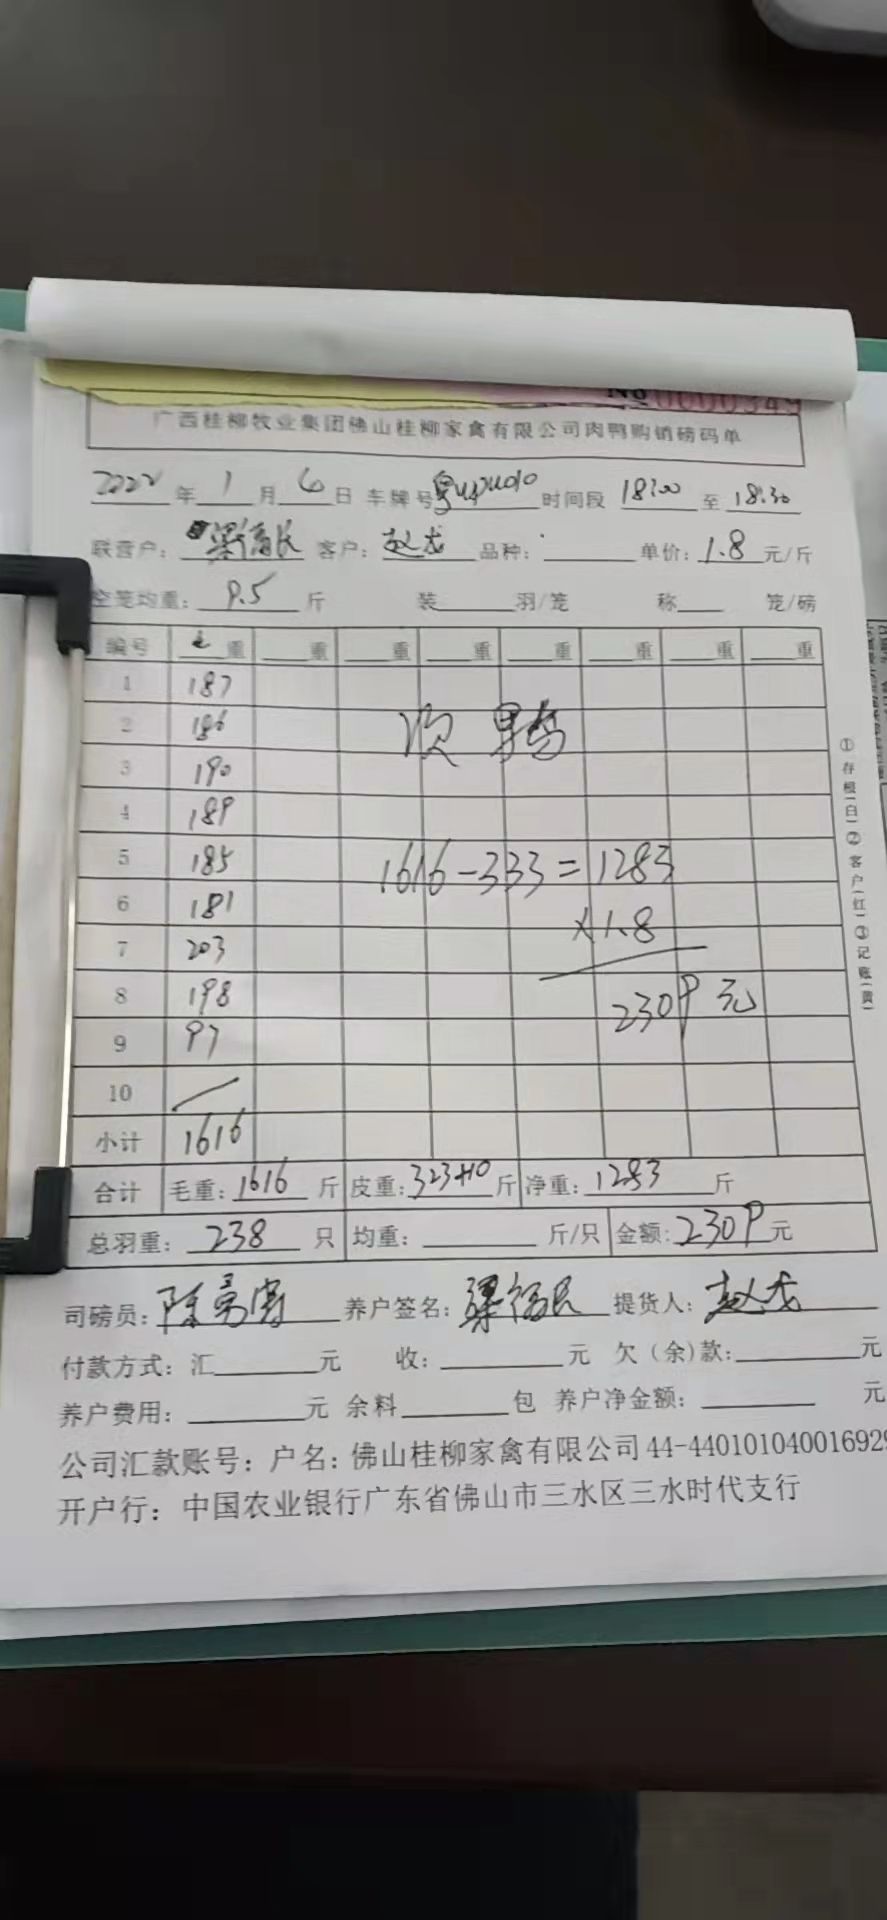 No 0000349
广西桂柳牧业集团佛山桂柳家禽有限公司肉鸭购销磅码单
2022年1月6日 车牌号 时间段 18:00 至 18:30
联营户: 客户: 赵龙 品种: 单价: 1.8 元/斤
空笼均重: 9.5 斤 装 羽/笼 称 笼/磅
编号 毛重 重 重 重 重 重 重 重
1 187
2 186
次
3 190
4 189
5 185
1616-333=1283
6 181
×1.8
7 203
8 198
2309元
9 97
10 /
小计 1616
合计 毛重: 1616 斤 皮重: 323+10 斤 净重: 1283 斤
总羽重: 238 只 均重: 斤/只 金额: 2309 元
司磅员: 养户签名: 提货人: 赵龙
付款方式: 汇 元 收: 元 欠(余)款: 元
养户费用: 元 余料 包 养户净金额: 元
公司汇款账号: 户名: 佛山桂柳家禽有限公司 44-440101040016929
开户行: 中国农业银行广东省佛山市三水区三水时代支行
①存根(白)②客户(红)③记账(黄)